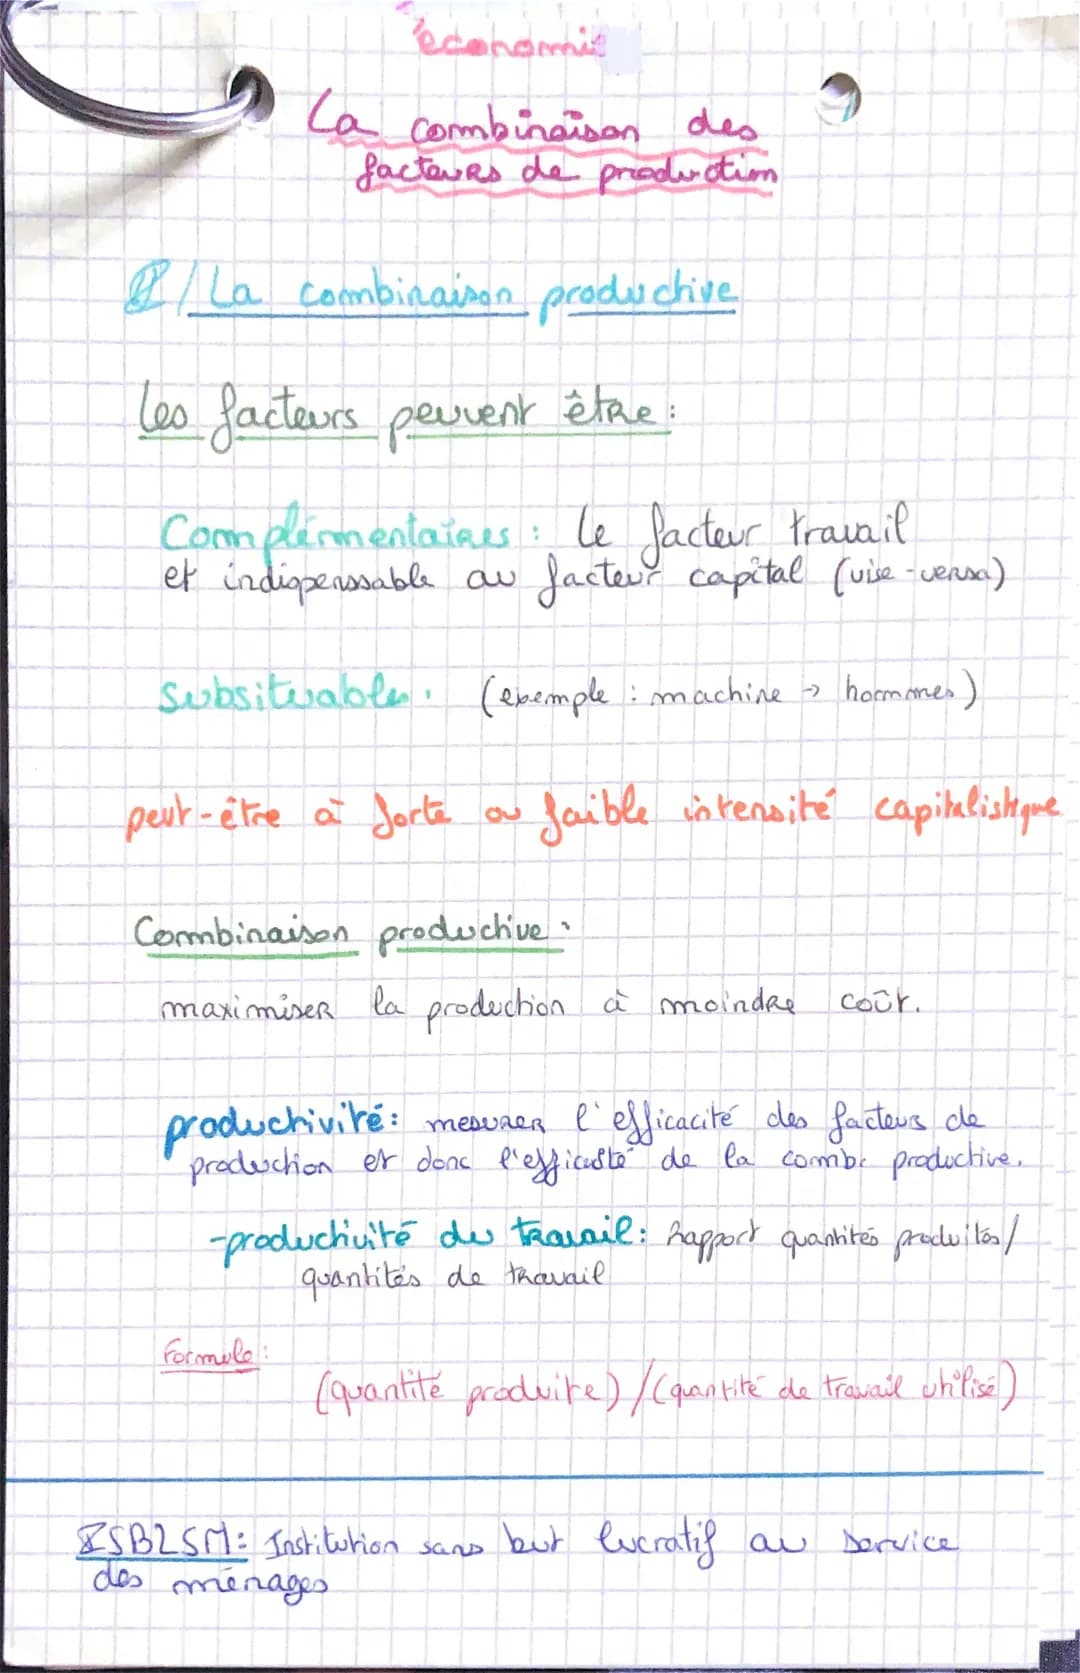 économie
La combinaison des
facteurs de production
I/ La combinaison productive
Les facteurs peuvent être :
Complémentaires : le facteur travail
et indispenssable au facteur capital (vise-versa)
Subsituables : (exemple : machine → hommes)
peut-être à forte ou faible intensité capitalistique
Combinaison productive :
maximiser la production à moindre coût.
productivité : mesurer l'efficacité des facteurs de
production et donc l'efficacité de la comb. productive.
-productivité du travail : Rapport quantités produites/
quantités de travail
Formule :
(quantité produite) / (quantité de travail utilisé)
ISBLSM : Institution sans but lucratif au service
des ménages